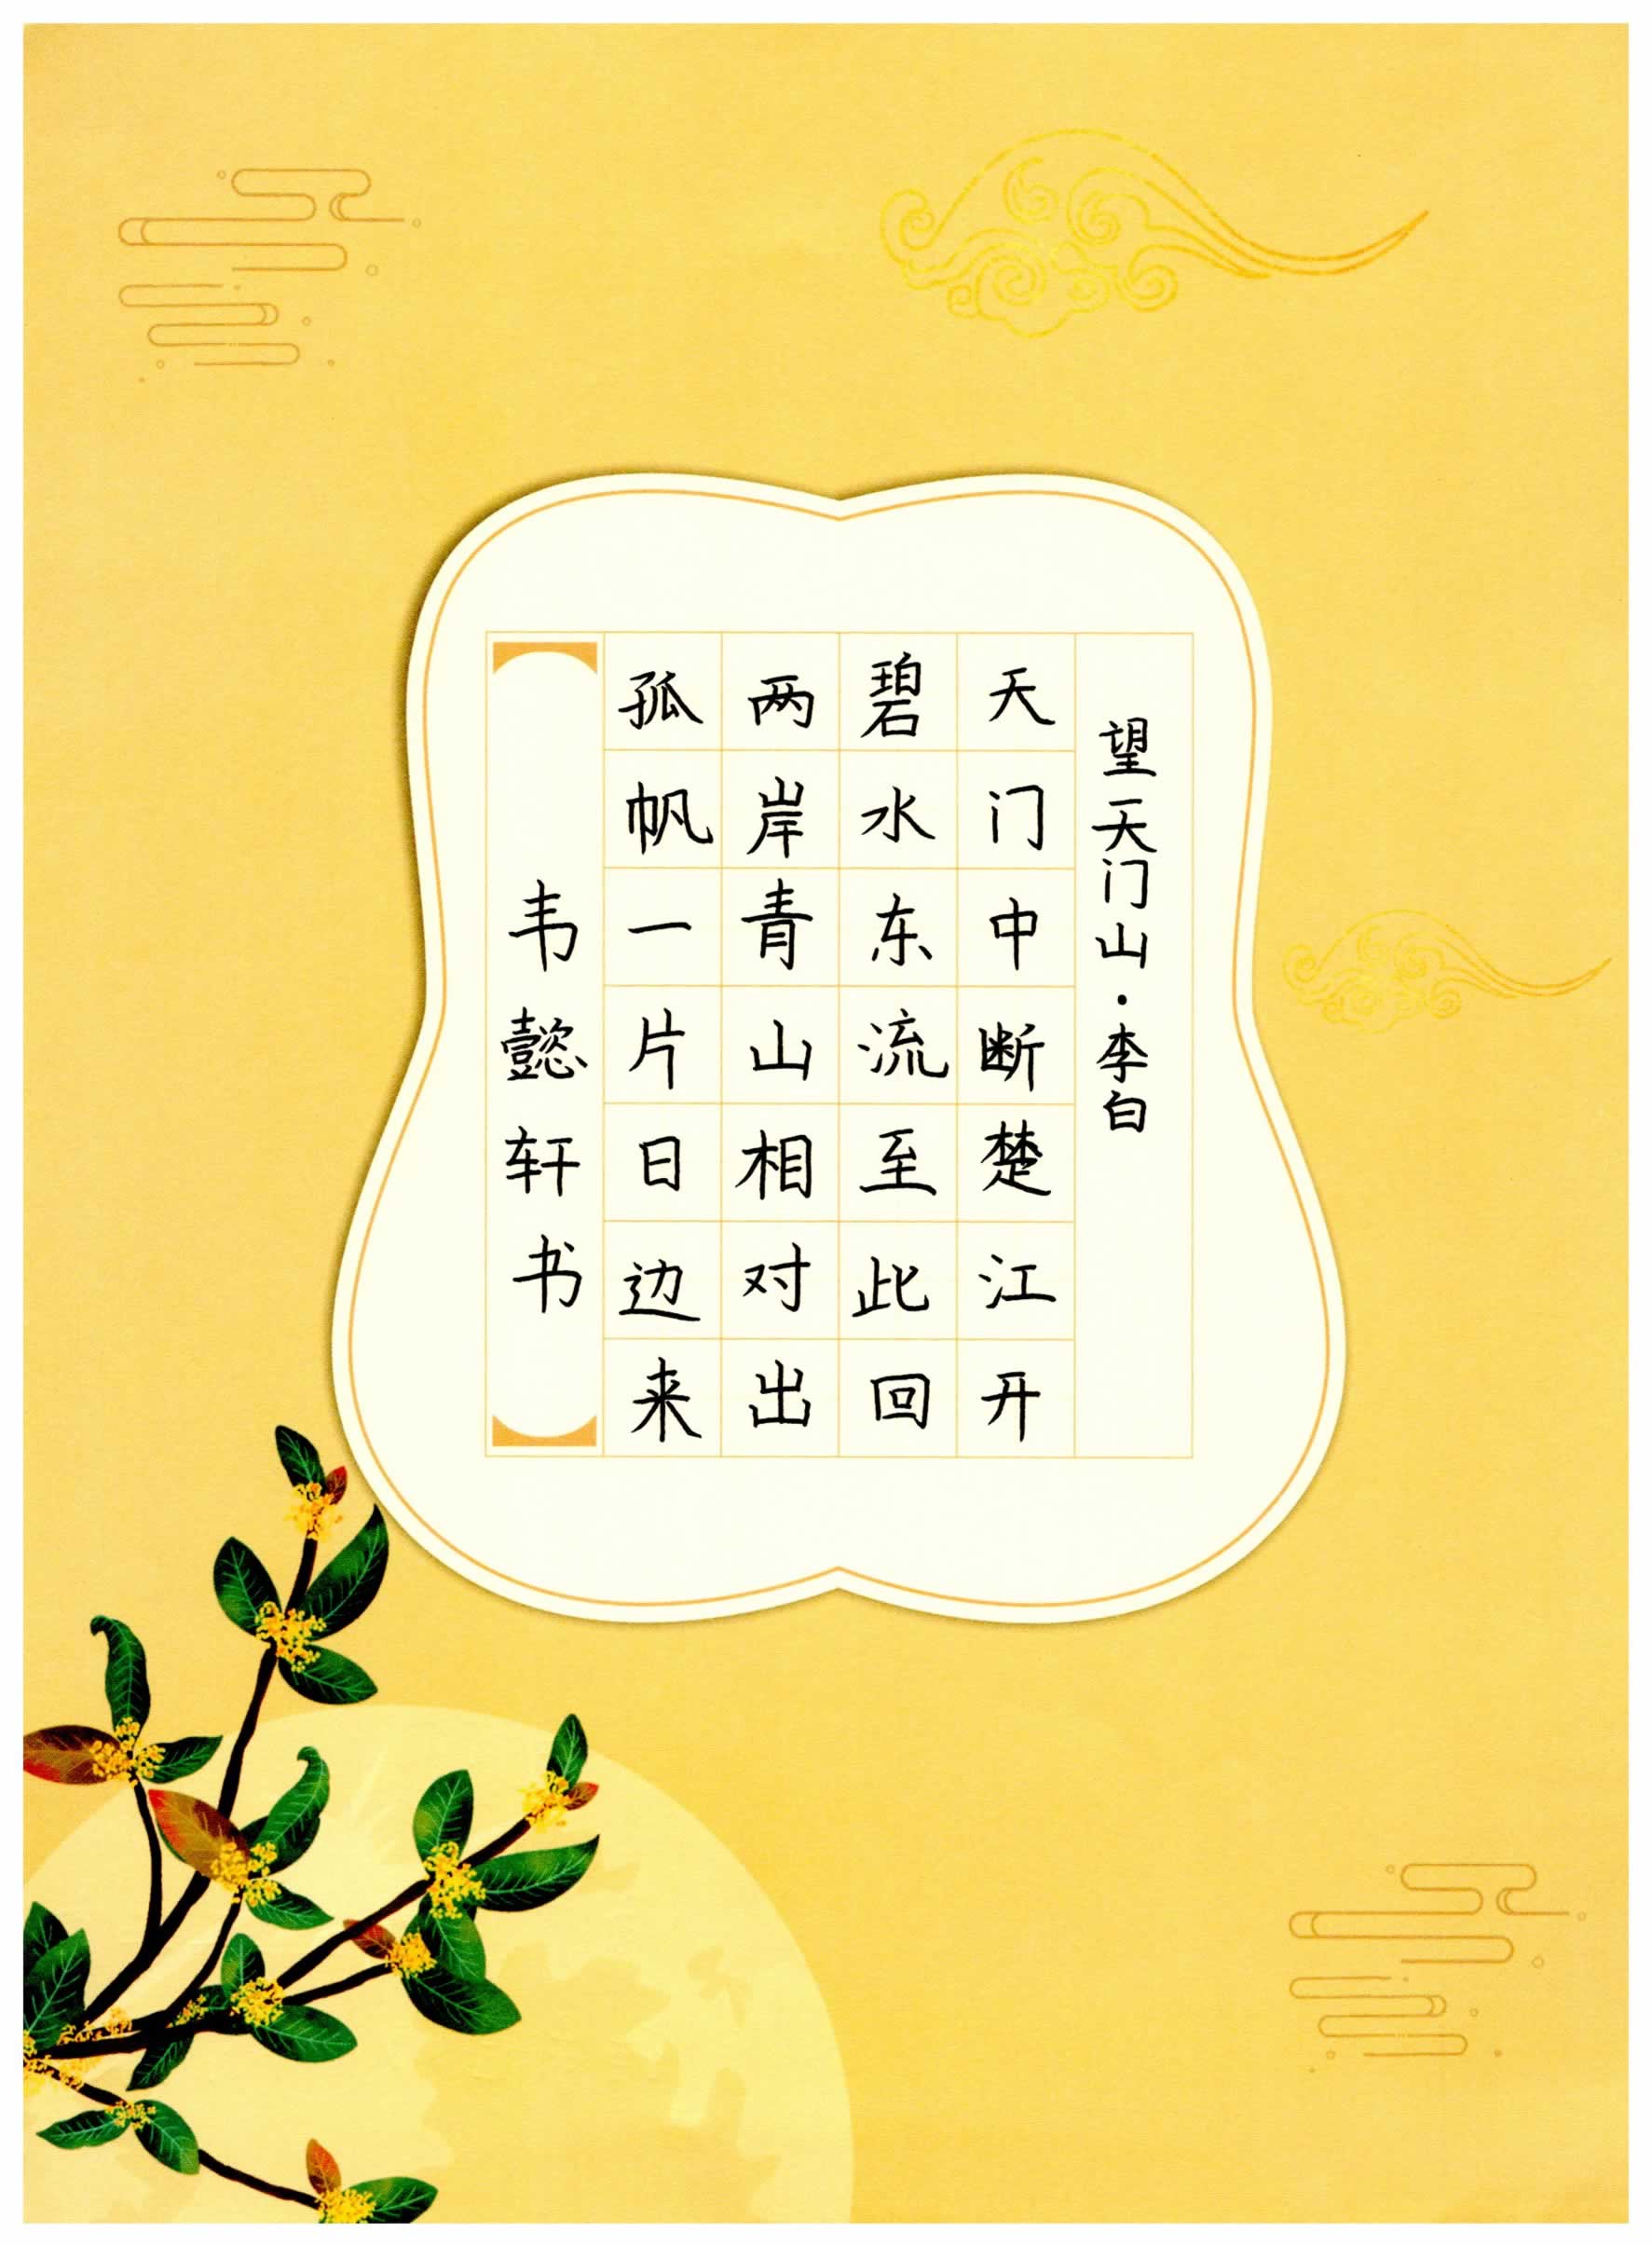 望天门山·李白
天门中断楚江开
碧水东流至此回
两岸青山相对出
孤帆一片日边来
韦懿轩书